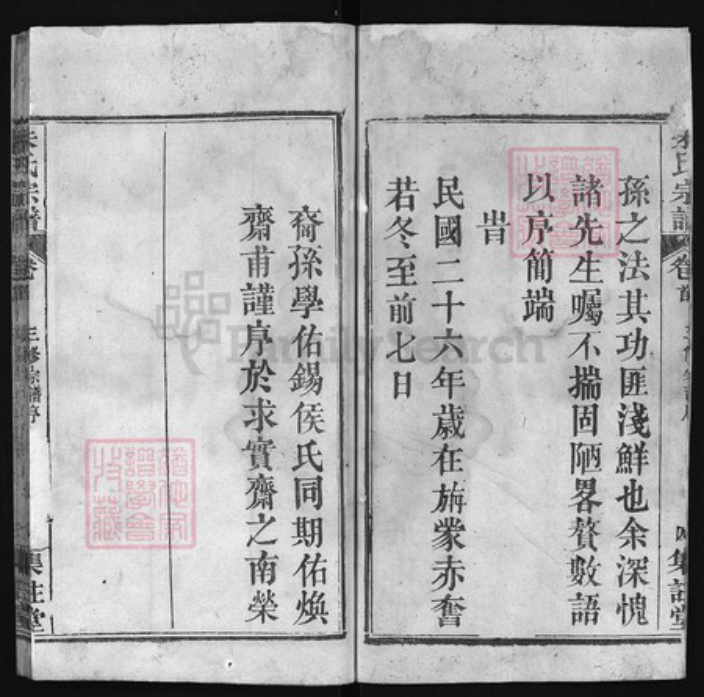 孫之法其功匪淺鮮也余深愧
諸先生囑不揣固陋畧贅數語
以序簡端
旹
民國二十六年歲在旃蒙赤奮
若冬至前七日
裔孫學佑錫侯氏同期佑煥
齋甫謹序於求實齋之南榮
氏宗譜
卷首
三修宗譜序
FamilySearch